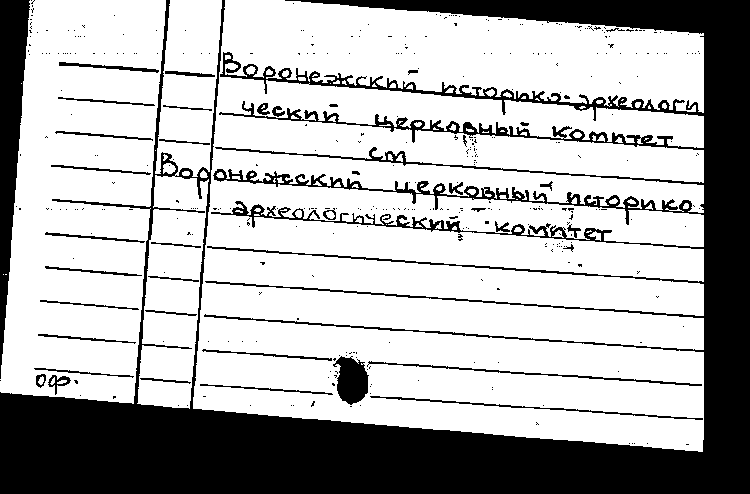 Воронежский историко-археологи
ческий церковный комитет
см
Воронежский церковный историко-
археологический комитет
оф.